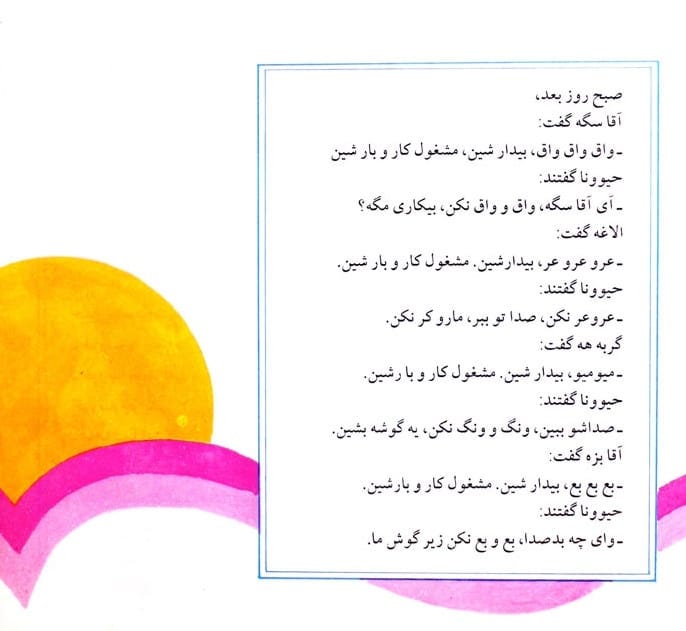 صبح روز بعد،
آقا سگه گفت:
ـ واق واق واق، بیدار شین، مشغول کار و بار شین
حیوونا گفتند:
ـ آی آقا سگه، واق و واق نکن، بیکاری مگه؟
الاغه گفت:
ـ عرو عرو عر، بیدارشین. مشغول کار و بار شین.
حیوونا گفتند:
ـ عروعر نکن، صدا تو ببر، مارو کر نکن.
گربه هه گفت:
ـ میومیو، بیدار شین. مشغول کار و با رشین.
حیوونا گفتند:
ـ صداشو ببین، ونگ و ونگ نکن، یه گوشه بشین.
آقا بزه گفت:
ـ بع بع بع، بیدار شین. مشغول کار و بارشین.
حیوونا گفتند:
ـ وای چه بدصدا، بع و بع نکن زیر گوش ما.